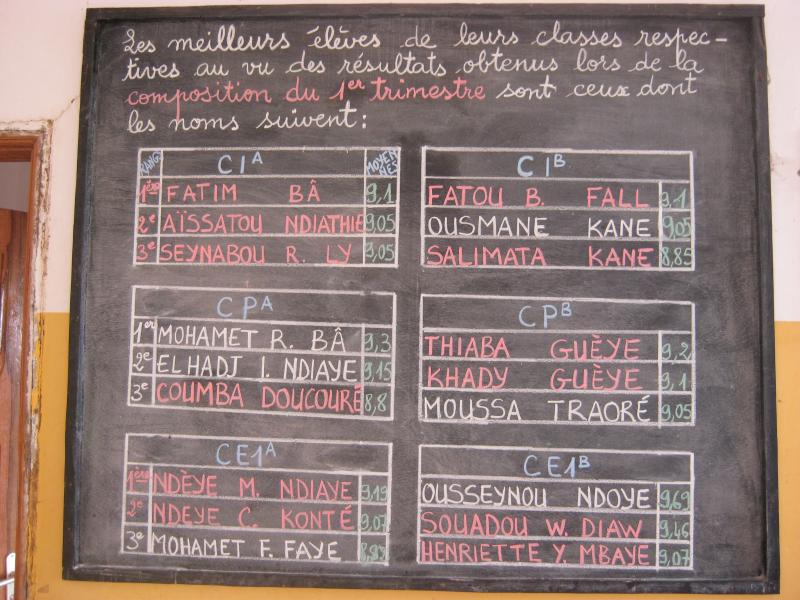 Les meilleurs élèves de leurs classes respec-
tives au vu des résultats obtenus lors de la
composition du 1er trimestre sont ceux dont
les noms suivent :
RANG CIA MOYENNES
1ère FATIM BÂ 9,1
2e AÏSSATOU NDIATHIE 9,05
3e SEYNABOU R. LY 9,05
CIB
FATOU B. FALL 9,1
OUSMANE KANE 9,05
SALIMATA KANE 8,85
CPA
1er MOHAMET R. BÂ 9,3
2e EL HADJ I. NDIAYE 9,15
3e COUMBA DOUCOURÉ 8,8
CPB
THIABA GUÈYE 9,2
KHADY GUÈYE 9,1
MOUSSA TRAORÉ 9,05
CE1A
1ère NDÈYE M. NDIAYE 9,19
2e NDEYE C. KONTÉ 9,07
3e MOHAMET F. FAYE 8,93
CE1B
OUSSEYNOU NDOYE 9,69
SOUADOU W. DIAW 9,46
HENRIETTE Y. MBAYE 9,07